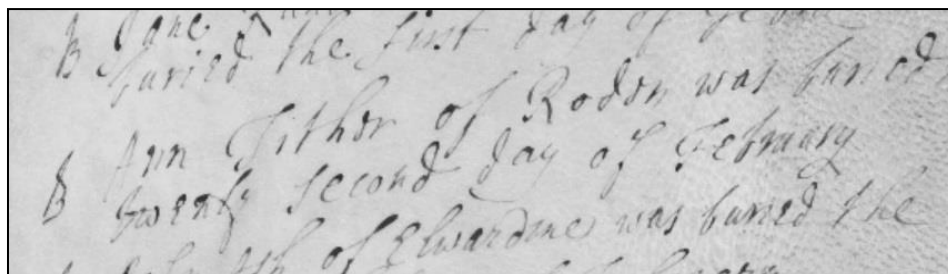 Jane
B buried the first day of
Ann Tither of Roden was buried
B twenty second day of February
of Elwardine was buried the